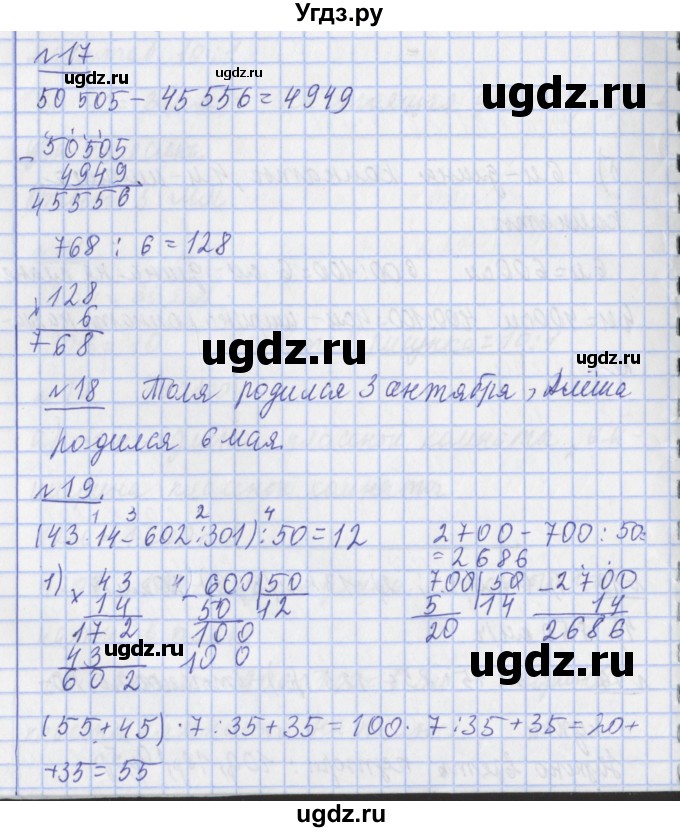 Угдз.ру
№17
50 505 - 45 556 = 4949
- 50505
4949
45556
768 : 6 = 128
× 128
6
768
№18 Толя родился 3 сентября, Алёша
родился 6 мая.
№19.
1 3 2 4
(43·14 - 602:301):50=12 2700 - 700:50=
= 2686
1) × 43 4) - 600|50 700|50 - 2700
14 50 12 5 14 14
172 100 20 2686
43 100
602
(55+45)·7:35+35=100·7:35+35=20+
+35=55
ugdz.ru
ugdz.ru
ugdz.ru
ugdz.ru
ugdz.ru
ugdz.ru
ugdz.ru
ugdz.ru
ugdz.ru
ugdz.ru